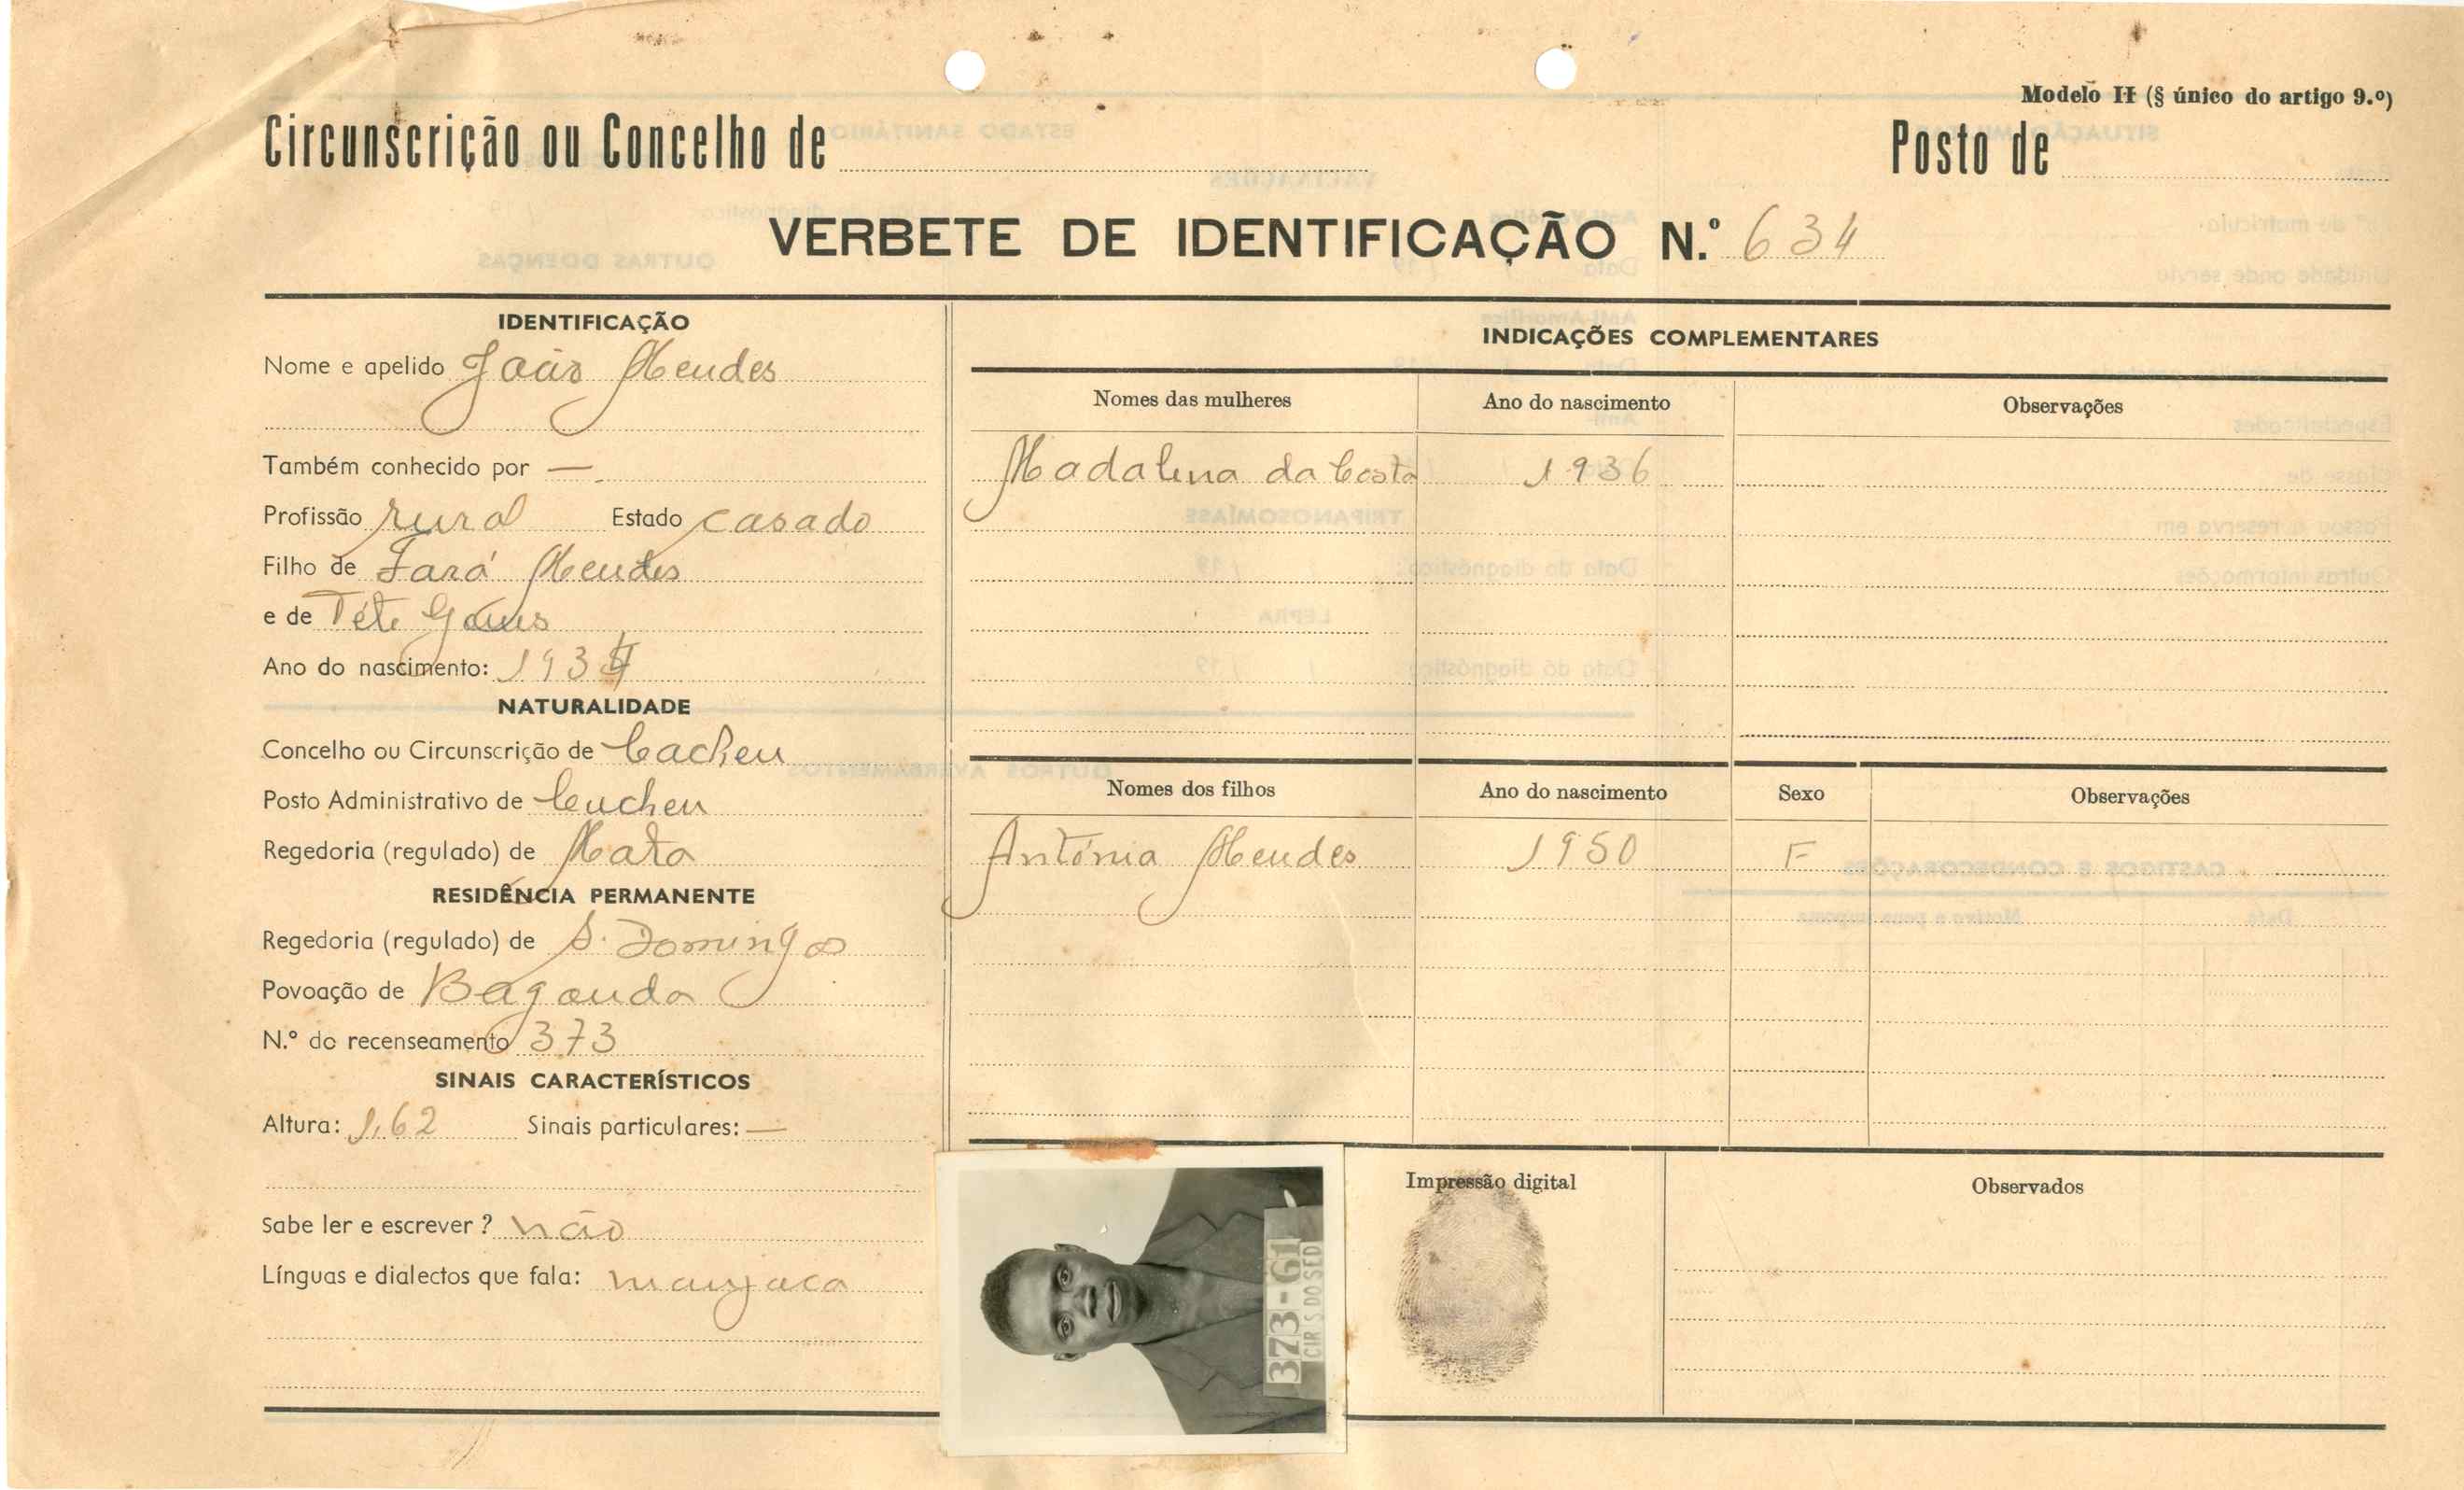 Modelo II (§ único do artigo 9.º)
Circunscrição ou Concelho de
Posto de
VERBETE DE IDENTIFICAÇÃO N.º 634
IDENTIFICAÇÃO
Nome e apelido João Mendes
Também conhecido por —
Profissão rural Estado casado
Filho de Fará Mendes
e de Tété Gomes
Ano do nascimento:
NATURALIDADE
Concelho ou Circunscrição de Cacheu
Posto Administrativo de Cacheu
Regedoria (regulado) de Mata
RESIDÊNCIA PERMANENTE
Regedoria (regulado) de S. Domingos
Povoação de Baganda
N.º do recenseamento 373
SINAIS CARACTERÍSTICOS
Altura: 1,62 Sinais particulares: —
Sabe ler e escrever ? não
Línguas e dialectos que fala: manjaca
INDICAÇÕES COMPLEMENTARES
Nomes das mulheres Ano do nascimento Observações
Madalena da Costa 1936
Nomes dos filhos Ano do nascimento Sexo Observações
Antónia Mendes 1950 F
373-61
CIR S DO SED
Impressão digital
Observados